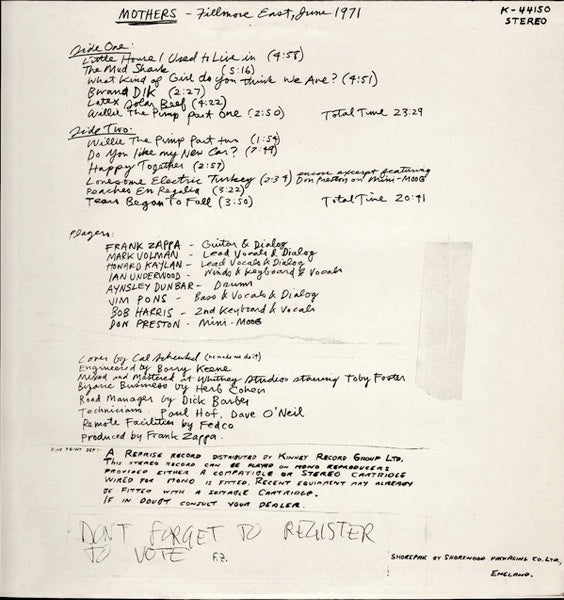 MOTHERS - Fillmore East, June 1971
K-44150
STEREO
Side One:
Little House I Used to Live in (4:58)
The Mud Shark (5:16)
What Kind of Girl do you think We Are? (4:51)
Bwana DIK (2:27)
Latex Solar Beef (4:22)
Willie The Pimp part One (2:50) Total Time 23:29
Side Two:
Willie The Pimp Part two (1:54)
Do You like my New Car? (7:49)
Happy Together (2:57)
Lonesome Electric Turkey (2:34) encore excerpt featuring Don Preston on Mini-MOOG
Peaches En Regalia (3:22)
Tears Began to Fall (3:50) Total Time 20:41
Players:
FRANK ZAPPA - Guitar & Dialog
MARK VOLMAN - Lead Vocals & Dialog
HOWARD KAYLAN - Lead Vocals & Dialog
IAN UNDERWOOD - Winds & Keyboard & Vocals
AYNSLEY DUNBAR - Drums
JIM PONS - Bass & Vocals & Dialog
BOB HARRIS - 2nd Keyboard & Vocals
DON PRESTON - Mini-MOOG
Cover by Cal Schenkel (he made me do it)
Engineered by Barry Keene
Mixed and Mastered at Whitney Studios starring Toby Foster
Bizarre Business by Herb Cohen
Road Manager by Dick Barber
Technicians Paul Hof, Dave O'Neil
Remote Facilities by Fedco
Produced by Frank Zappa.
FINE PRINT DEPT: A REPRISE RECORD DISTRIBUTED BY KINNEY RECORD GROUP LTD.
THIS STEREO RECORD CAN BE PLAYED ON MONO REPRODUCERS
PROVIDED EITHER A COMPATIBLE OR STEREO CARTRIDGE
WIRED FOR MONO IS FITTED. RECENT EQUIPMENT MAY ALREADY
BE FITTED WITH A SUITABLE CARTRIDGE.
IF IN DOUBT CONSULT YOUR DEALER.
DON'T FORGET TO REGISTER
TO VOTE F.Z.
SHOREPAK BY SHOREWOOD PACKAGING CO. LTD.,
ENGLAND.